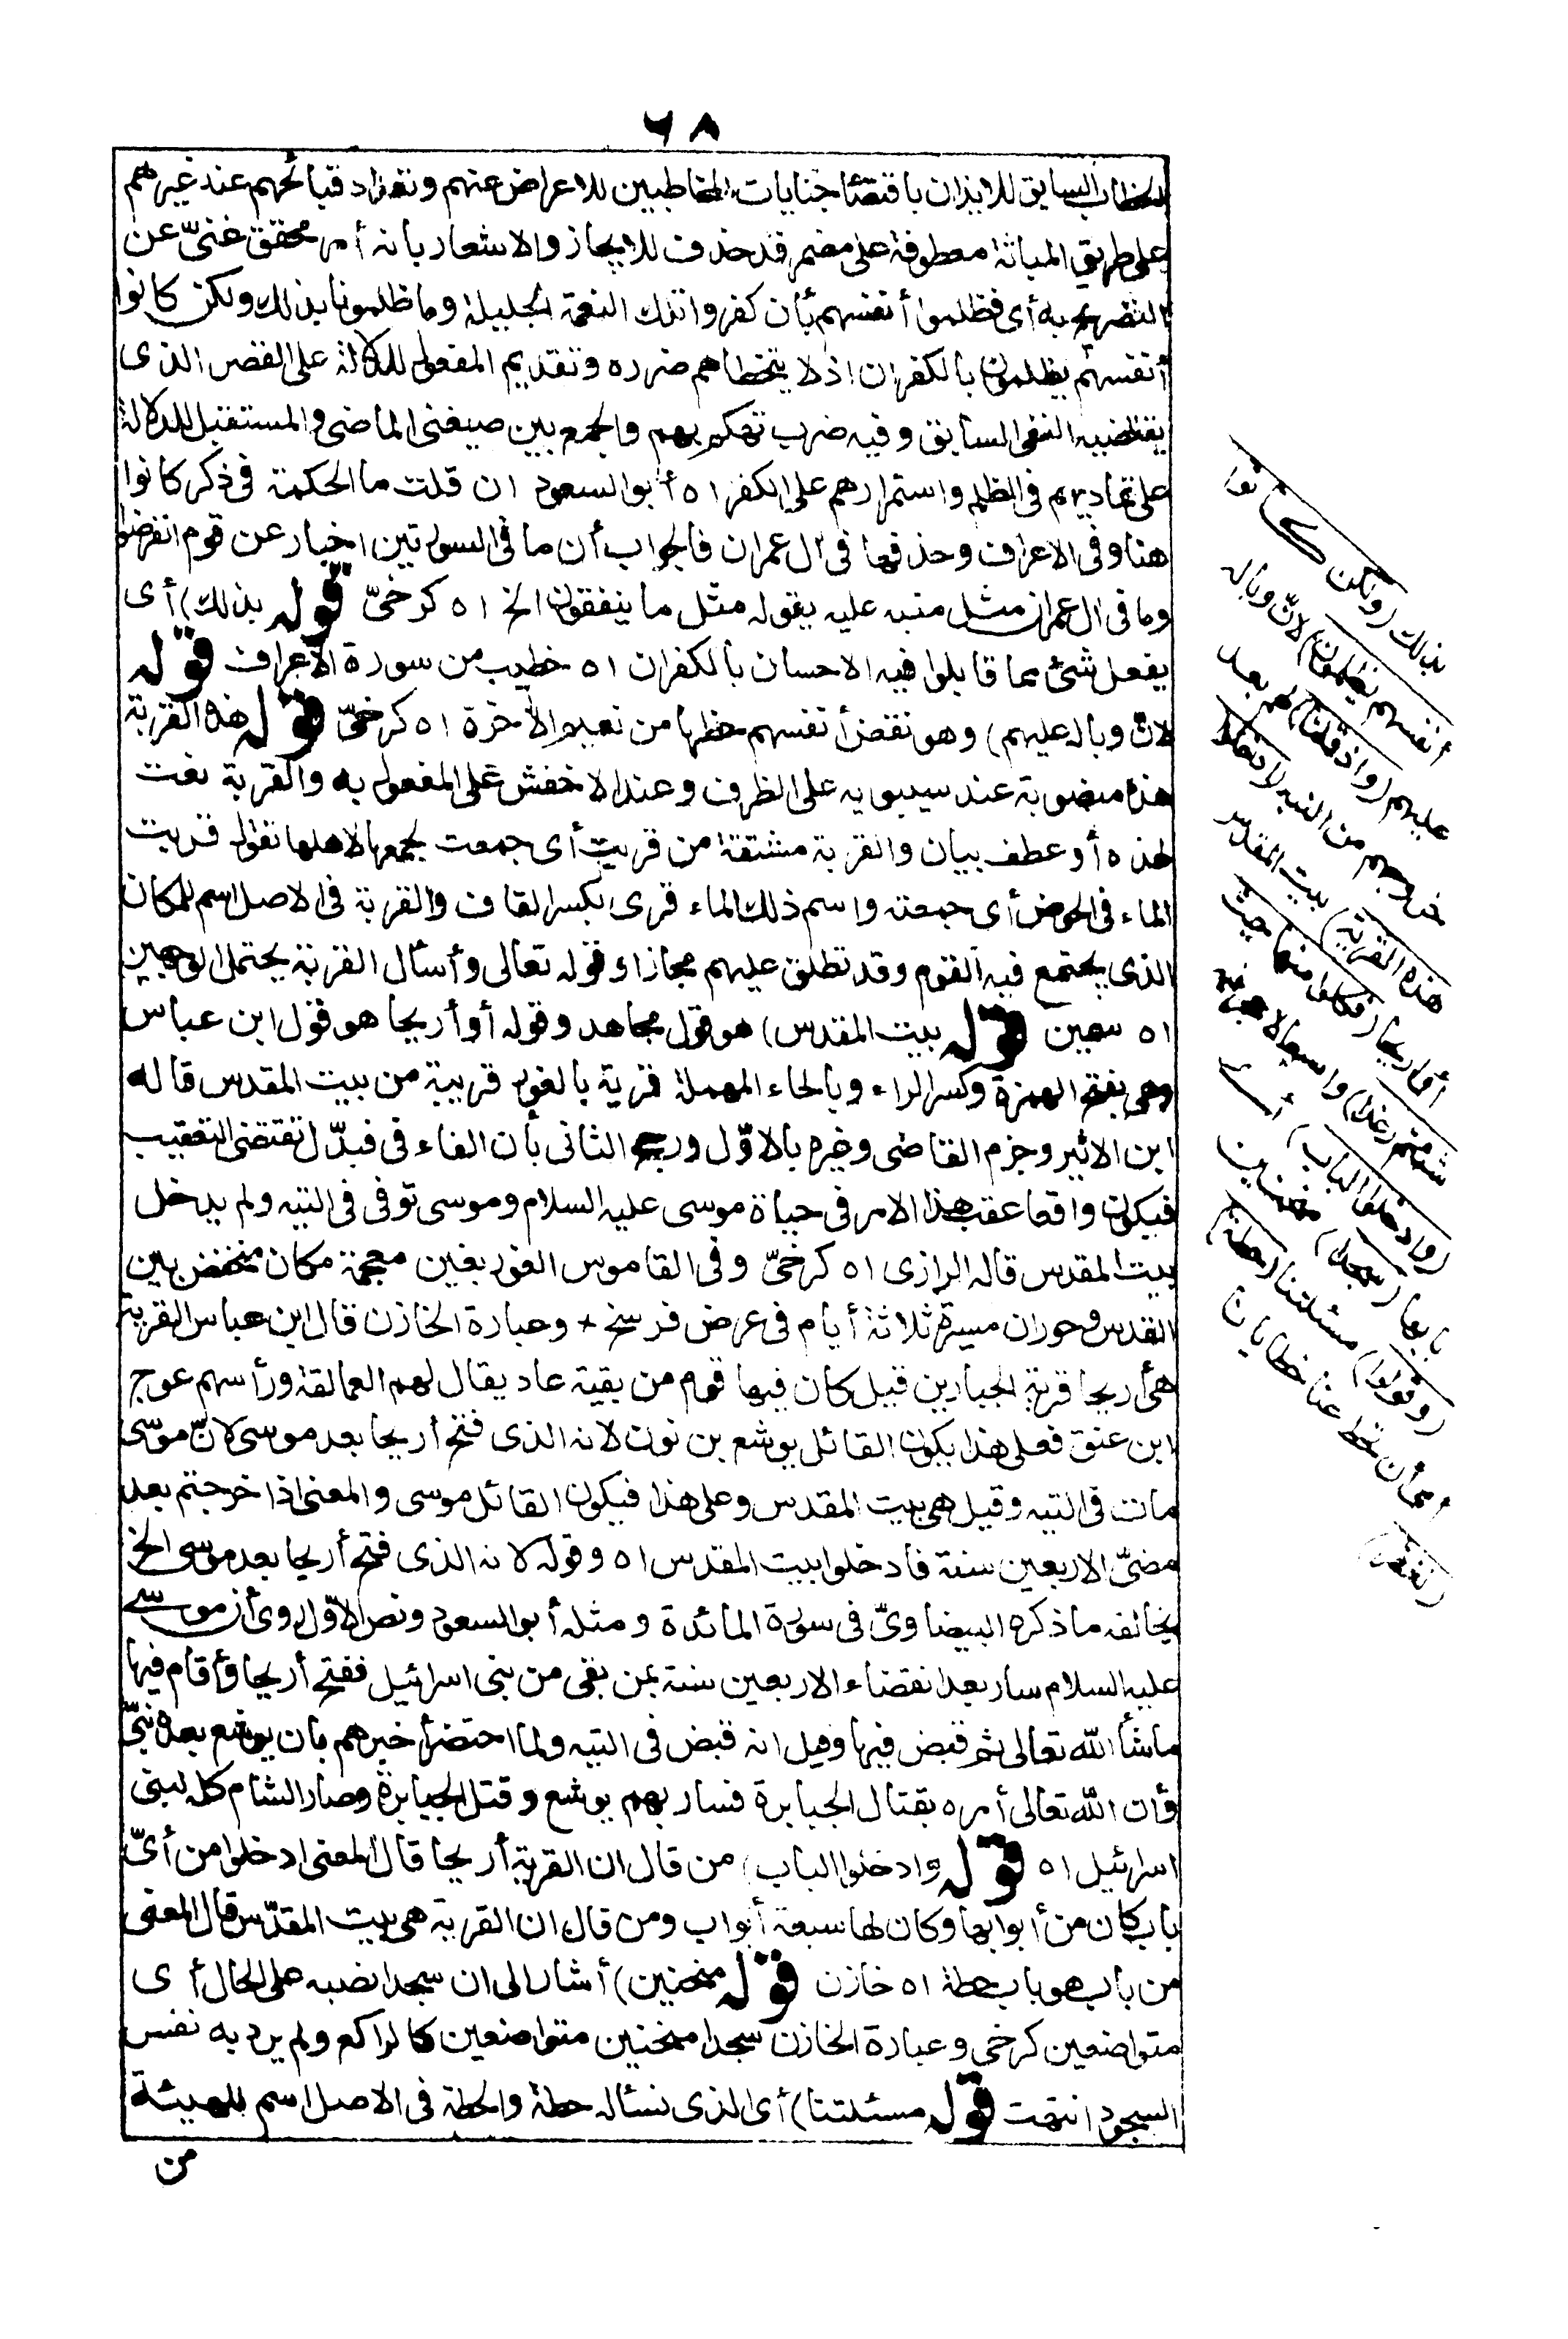 ٦٨
الخطاب السابق للايذان باقتضا جنايات المخاطبين للاعراض عنهم وتعداد قبائحهم عند غيرهم
على طريق المباثة معطوفة على مضمر قد حذف للايجاز والاشعار بانه أمر محقق غنىّ عن
التصريح به أى فظلموا أنفسهم بأن كفروا تلك النعمة الجليلة وما ظلمونا بذلك ولكن كانوا
أنفسهم يظلمون بالكفران اذ لا يتخطاهم ضرره وتقديم المفعول للدلالة على القصر الذى
يقتضيه النفى السابق وفيه ضرب تهكم بهم والجمع بين صيغتى الماضى والمستقبل للدلالة
على تماديهم فى الظلم واستمرارهم على الكفر اه أبو السعود ان قلت ما الحكمة فى ذكر كانوا
هنا وفى الاعراف وحذفها فى آل عمران فالجواب أن ما فى السورتين اخبار عن قوم انقرضوا
وما فى ال عمران مثل منبه عليه بقوله مثل ما ينفقون الخ اه كرخىّ قوله بذلك) أى
بفعل شئ مما قابلوا فيه الاحسان بالكفران اه خطيب من سورة الاعراف قوله
لانّ وباله عليهم) وهو نقض أنفسهم حظها من نعيم الآخرة اه كرخىّ قوله هذه القرية
هذه منصوبة عند سيبويه على الظرف وعند الاخفش على المفعول به والقرية نعت
لهذه أو عطف بيان والقرية مشتقة من قريت أى جمعت لجمعها لاهلها تقول قريت
الماء فى الحوض أى جمعته واسم ذلك الماء قرى بكسر القاف والقرية فى الاصل اسم للمكان
الذى يجتمع فيه القوم وقد تطلق عليهم مجازا وقوله تعالى وأسأل القرية يحتمل الوجهين
اه سمين قوله بيت المقدس) هو قول مجاهد وقوله أو أريحا هو قول ابن عباس
وهى بفتح الهمزة وكسر الراء وبالحاء المهملة قرية بالغور قريبة من بيت المقدس قاله
ابن الاثير وجزم القاضى وغيره بالاوّل ورجح الثانى بأن الفاء فى فبدّل تقتضى التعقيب
فيكون واقعا عقب هذا الامر فى حياة موسى عليه السلام وموسى توفى فى التيه ولم يدخل
بيت المقدس قاله الرازى اه كرخىّ وفى القاموس الغور بغين معجمة مكان منخفض بين
القدس وحوران مسيرة ثلاثة أيام فى عرض فرسخ + وعبارة الخازن قال ابن عباس القرية
هى أريحا قرية الجبارين قيل كان فيها قوم من بقية عاد يقال لهم العمالقة ورأسهم عوج
ابن عنق فعلى هذا يكون القائل يوشع بن نون لانه الذى فتح أريحا بعد موسى لانّ موسى
مات فى التيه وقيل هى بيت المقدس وعلى هذا فيكون القائل موسى والمعنى اذا خرجتم بعد
مضىّ الاربعين سنة فادخلوا بيت المقدس اه وقوله لانه الذى فتح أريحا بعد موسى الخ
يخالفه ما ذكره البيضاوىّ فى سورة المائدة ومثله أبو السعود ونص الاوّل روى أن موسى
عليه السلام سار بعد انقضاء الاربعين سنة بمن بقى من بنى اسرائيل ففتح أريحا وأقام فيها
ماشأ الله تعالى ثم قبض فيها وقيل انه قبض فى التيه ولما احتضر أخبرهم بان يوشع بعده نبىّ
وأن الله تعالى أمره بقتال الجبابرة فسار بهم يوشع وقتل الجبابرة وصار الشام كله لبنى
اسرائيل اه قوله وادخلوا الباب) من قال ان القرية أريحا قال المعنى ادخلوا من أىّ
باب كان من أبوابها وكان لها سبعة أبواب ومن قال ان القرية هى بيت المقدّس قال المعنى
من باب هو باب حطة اه خازن قوله منحنين) أشار الى ان سجدا نصبه على الحال أى
متواضعين كرخى وعبارة الخازن سجدا منحنين متواضعين كالراكع ولم يرد به نفس
السجود انتهت قوله مسئلتنا) أى الذى نسأله حطة والحطة فى الاصل اسم للهيئة
من
بذلك (ولكن كانوا
أنفسهم يظلمون) لانّ وباله
عليهم (واذ قلنا) لهم بعد
خروجهم من التيه (ادخلوا
هذه القرية) بيت المقدس
أو أريحا (فكلوا منها حيث
شئتم رغدا) واسعا لا حجر فيه
(وادخلوا الباب) أى
بابها (سجدا) منحنين
(وقولوا) مسئلتنا (حطة)
أى أن تحط عنا خطايانا
(نغفر)